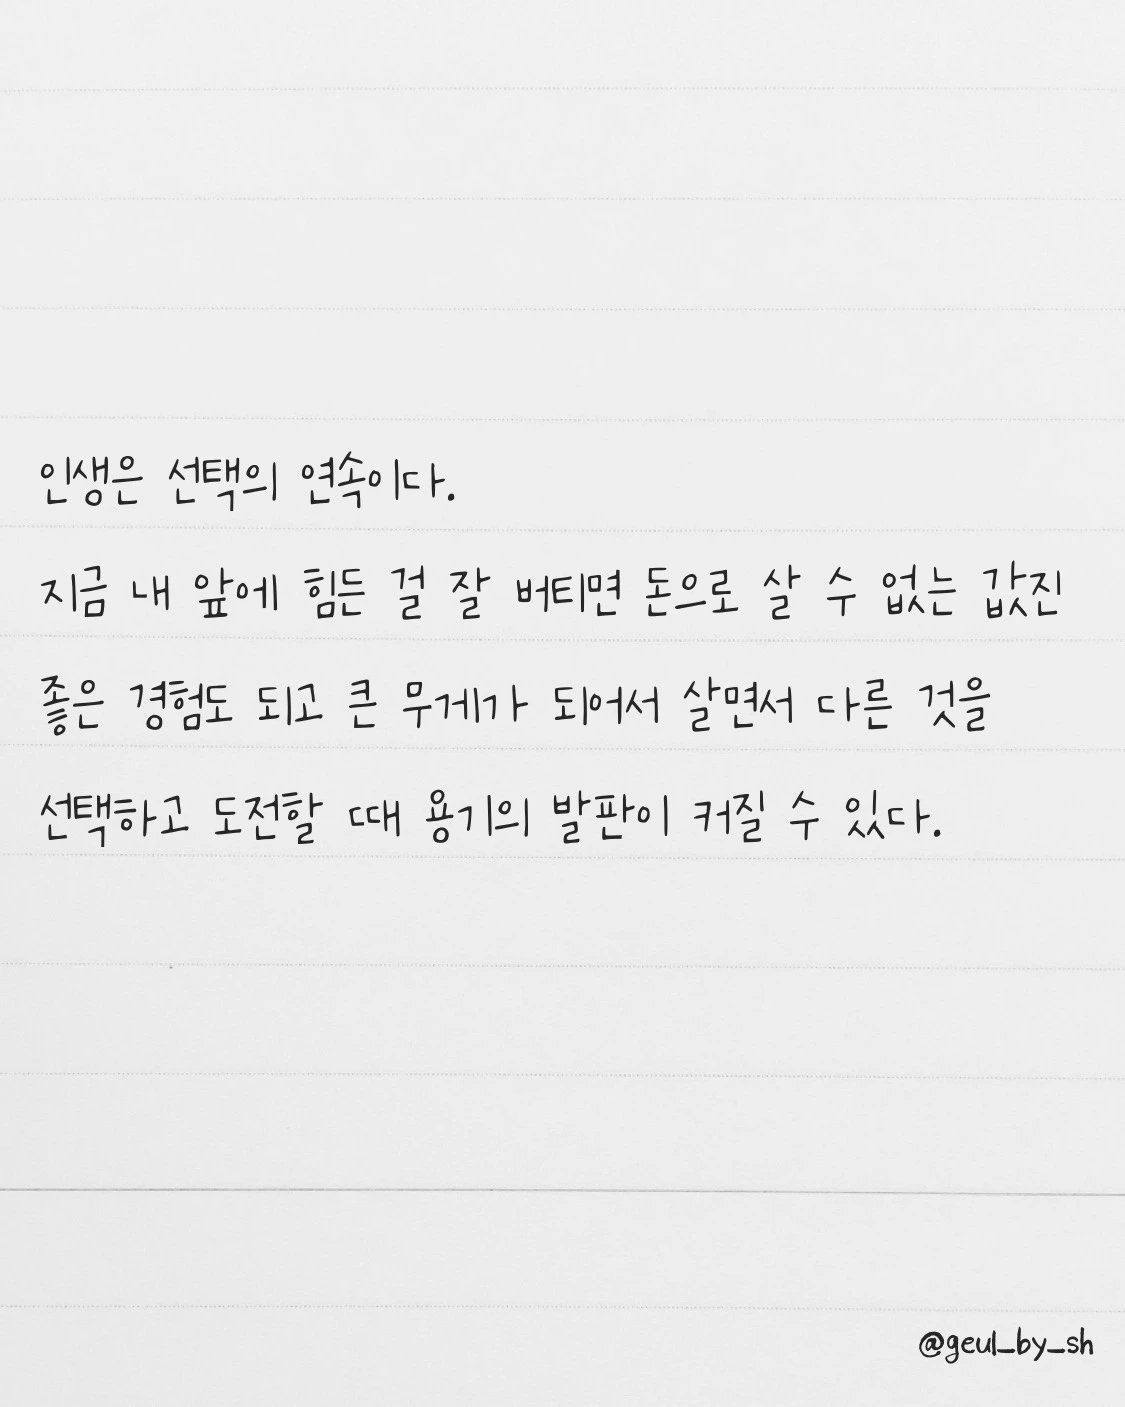 인생은 선택의 연속이다.
지금 내 앞에 힘든 걸 잘 버티면 돈으로 살 수 없는 값진
좋은 경험도 되고 큰 무게가 되어서 살면서 다른 것을
선택하고 도전할 때 용기의 발판이 커질 수 있다.
@geul_by_sh